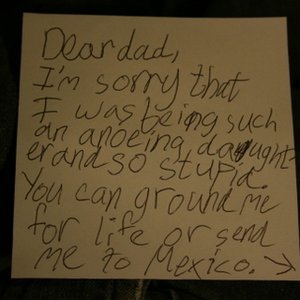 Dear dad,
I'm sorry that
I was being such
an anoeing daught
er and so stupid.
You can ground me
for life or send
me to Mexico. →